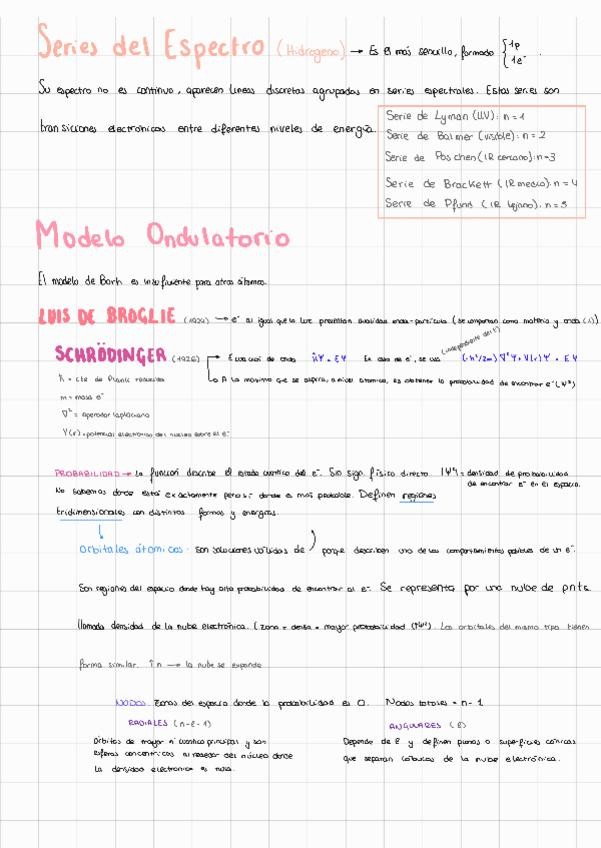 Series del Espectro (Hidrogeno) → Es el más sencillo, formado { 1p
1e⁻ .
Su espectro no es continuo, aparecen líneas discretas agrupadas en series espectrales. Estas series son
transiciones electrónicas entre diferentes niveles de energía.
Serie de Lyman (UV): n = 1
Serie de Balmer (visible): n = 2
Serie de Paschen (IR cercano): n=3
Serie de Brackett (IR medio): n = 4
Serie de Pfund (IR lejano): n = 5
Modelo Ondulatorio
El modelo de Borh es insuficiente para otros átomos.
LUIS DE BROGLIE (1924) → e⁻ al igual que la luz presentan dualidad onda-partícula (se comportan como materia y onda (λ))
SCHRÖDINGER (1926) → Ecuación de onda ĤΨ = EΨ En caso de e⁻, se usa (independiente del t) (-ħ²/2m) ∇²Ψ + V(r)Ψ = EΨ
→ A lo máximo que se aspira, a nivel atómico, es obtener la probabilidad de encontrar e⁻ (Ψ²)
ħ = cte de Planck reducida
m = masa e⁻
∇² = operador laplaciano
V(r) = potencial electrónico del núcleo sobre el e⁻
PROBABILIDAD → la función describe el estado cuántico del e⁻. Sin sign. físico directo. |Ψ|² = densidad de probabilidad
de encontrar e⁻ en el espacio.
No sabemos donde está exactamente pero sí donde es más probable. Definen regiones
tridimensionales con distintas formas y energías.
Orbitales átomicos: son soluciones válidas de ) porque describen uno de los comportamientos posibles de un e⁻.
Son regiones del espacio donde hay alta probabilidad de encontrar al e⁻. Se representa por una nube de pnts.
llamada densidad de la nube electrónica. (zona + densa = mayor probabilidad (Ψ²)). Los orbitales del mismo tipo tienen
forma similar. ↑n → la nube se expande
NODOS: Zonas del espacio donde la probabilidad es 0. Nodos totales = n - 1
RADIALES (n-ℓ-1)
Orbitas de mayor nº cuántico principal y son
esferas concéntricas alrededor del núcleo donde
la densidad electrónica es nula.
ANGULARES (ℓ)
Depende de ℓ y definen planos o superficies cónicas
que separan lóbulos de la nube electrónica.